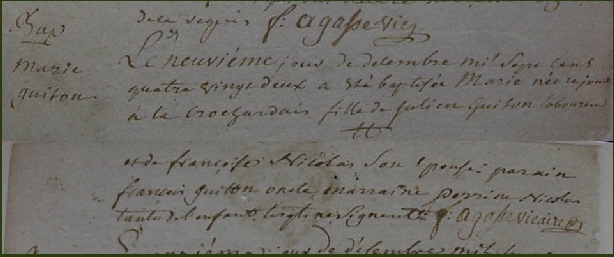 de ce requis f: agasse vic
Bap
Marie
guiton
Le neuvième jour de decembre mil sept cent
quatre vingt deux a été baptisée Marie née ce jour
à la crochardais fille de Julien Guiton laboureur
et de françoise Nicolas son épouse parain
françois guiton oncle, marraine perrine Nicolas
tante de l'enfant lesquels ne signent f: agasse vicaire
jour de décembre mil